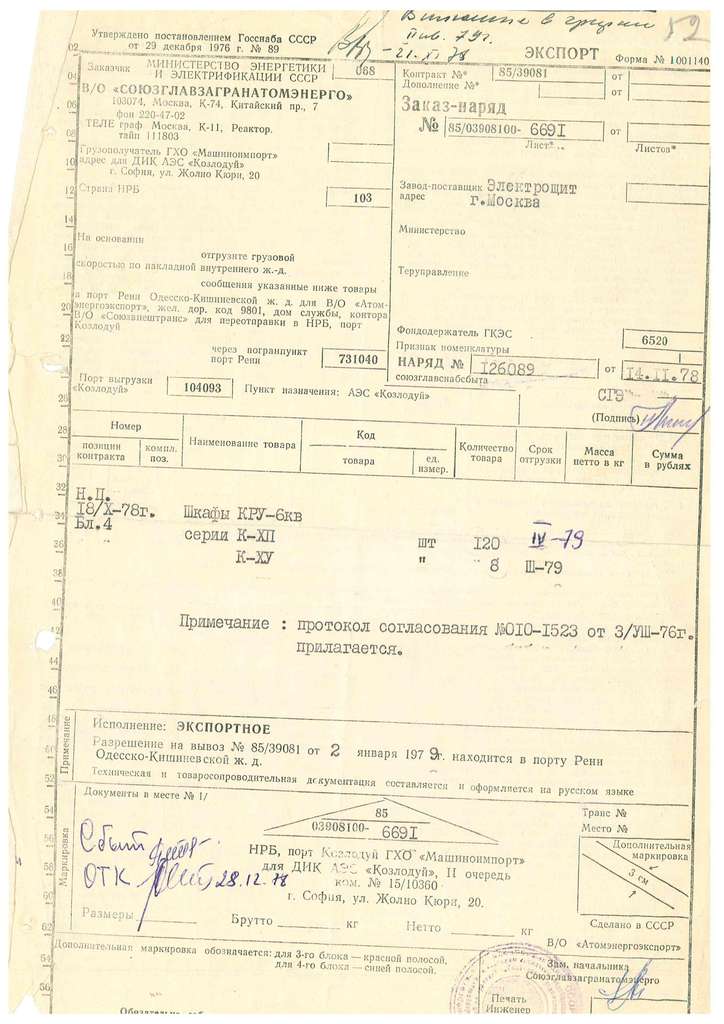 Утверждено постановлением Госснаба СССР
от 29 декабря 1976 г. № 89
52
ЭКСПОРТ Форма № 1001140
Заказчик МИНИСТЕРСТВО ЭНЕРГЕТИКИ
И ЭЛЕКТРИФИКАЦИИ СССР 068
В/О «СОЮЗГЛАВЗАГРАНАТОМЭНЕРГО»
103074, Москва, К-74, Китайский пр., 7
фон 220-47-02
ТЕЛЕ граф Москва, К-11, Реактор.
тайп 111803
Грузополучатель ГХО «Машиноимпорт»
адрес для ДИК АЭС «Козлодуй»
г. София, ул. Жолио Кюри, 20
Страна НРБ 103
Контракт №* 85/39081 от
Дополнение №* от
Заказ-наряд
№ 85/03908100-669I от
Лист* Листов*
Завод-поставщик Электрощит
адрес г.Москва
Министерство
Теруправление
На основании
отгрузите грузовой
скоростью по накладной внутреннего ж.-д.
сообщения указанные ниже товары
в порт Рени Одесско-Кишиневской ж. д. для В/О «Атом-
энергоэкспорт», жел. дор. код 9801, дом службы, контора
В/О «Союзвнештранс» для переотправки в НРБ, порт
Козлодуй
через погранпункт
порт Рени 731040
Фондодержатель ГКЭС 6520
Признак номенклатуры
НАРЯД № I26089 от I4.II.78
союзглавснабсбыта
Порт выгрузки
«Козлодуй» 104093 Пункт назначения: АЭС «Козлодуй»
(Подпись)
Номер
позиции контракта
компл. поз.
Наименование товара
Код
товара
ед. измер.
Количество товара
Срок отгрузки
Масса нетто в кг
Сумма в рублях
Н.П.
I8/X-78г. Шкафы КРУ-6кв
Бл.4 серии К-ХП шт I20 IV-79
К-ХУ " 8 Ш-79
Примечание : протокол согласования №0I0-I523 от 3/УШ-76г.
прилагается.
Примечание
Исполнение: ЭКСПОРТНОЕ
Разрешение на вывоз № 85/39081 от 2 января 1979г. находится в порту Рени
Одесско-Кишиневской ж. д.
Техническая и товаросопроводительная документация составляется и оформляется на русском языке
Маркировка
Документы в месте № 1/
85
03908100-669I
НРБ, порт Козлодуй ГХО «Машиноимпорт»
для ДИК АЭС «Козлодуй», II очередь
ком. № 15/10360
г. София, ул. Жолио Кюри, 20.
Сбыт
ОТК 28.12.78
Размеры Брутто кг Нетто кг
Транс №
Место №
Дополнительная
маркировка
3 см
Сделано в СССР
В/О «Атомэнергоэкспорт»
Дополнительная маркировка обозначается: для 3-го блока — красной полосой,
для 4-го блока — синей полосой.
Зам. начальника
Союзглавзагранатомэнерго
Печать
Инженер